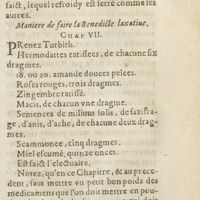 faict, lequel refroidy est ferré comme les
autres.
Maniere de faire la Benedicte laxatiue.
CHAP VII.
PRenez Turbith.
Hermodattes ratissées, de chacune six
dragmes.
18. ou 20. amande douces pelées.
Roses rouges, trois dragmes.
Zingembre ratissé.
Macis, de chacun vne dragme.
Semences de milium solis, de saxifra-
ge, d'anis, d'ache, de chacune deux drag-
mes.
Scammonee, cinq dragmes.
Miel escumé, quinze onces.
Et faict l'electuaire,
Notez, qu'en ce Chapitre, & au prece-
dent, faut mettre vn petit bon poids des
medicamens que l'on doit mettre en pou-